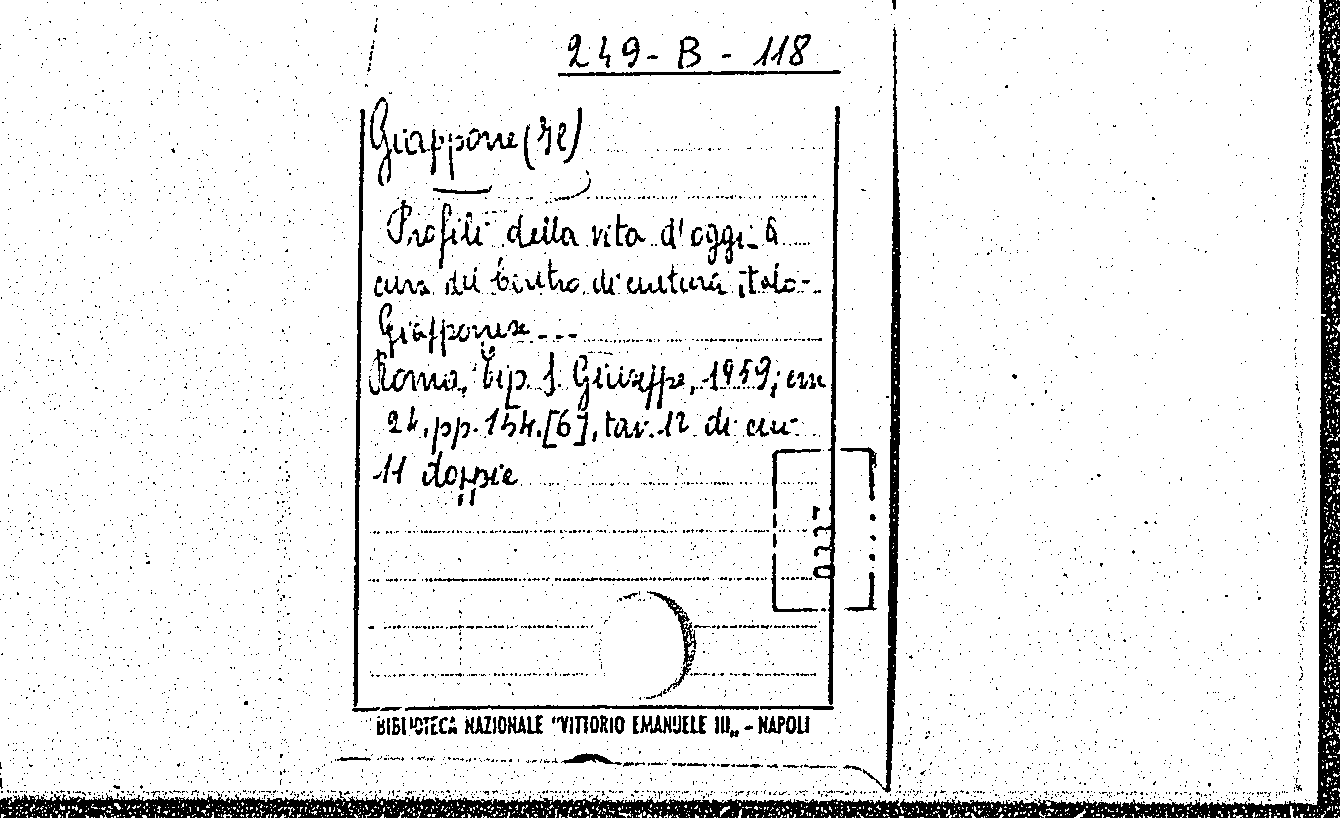 249-B-118
Giappone (Il)
Profili della vita d'oggi. A
cura del Centro di cultura italo-
Giapponese ---
Roma, Tip. S. Giuseppe, 1959; cm
24, pp. 154, [6], tav. 12 di cui
11 doppie
0337
BIBLIOTECA NAZIONALE "VITTORIO EMANUELE III„ - NAPOLI